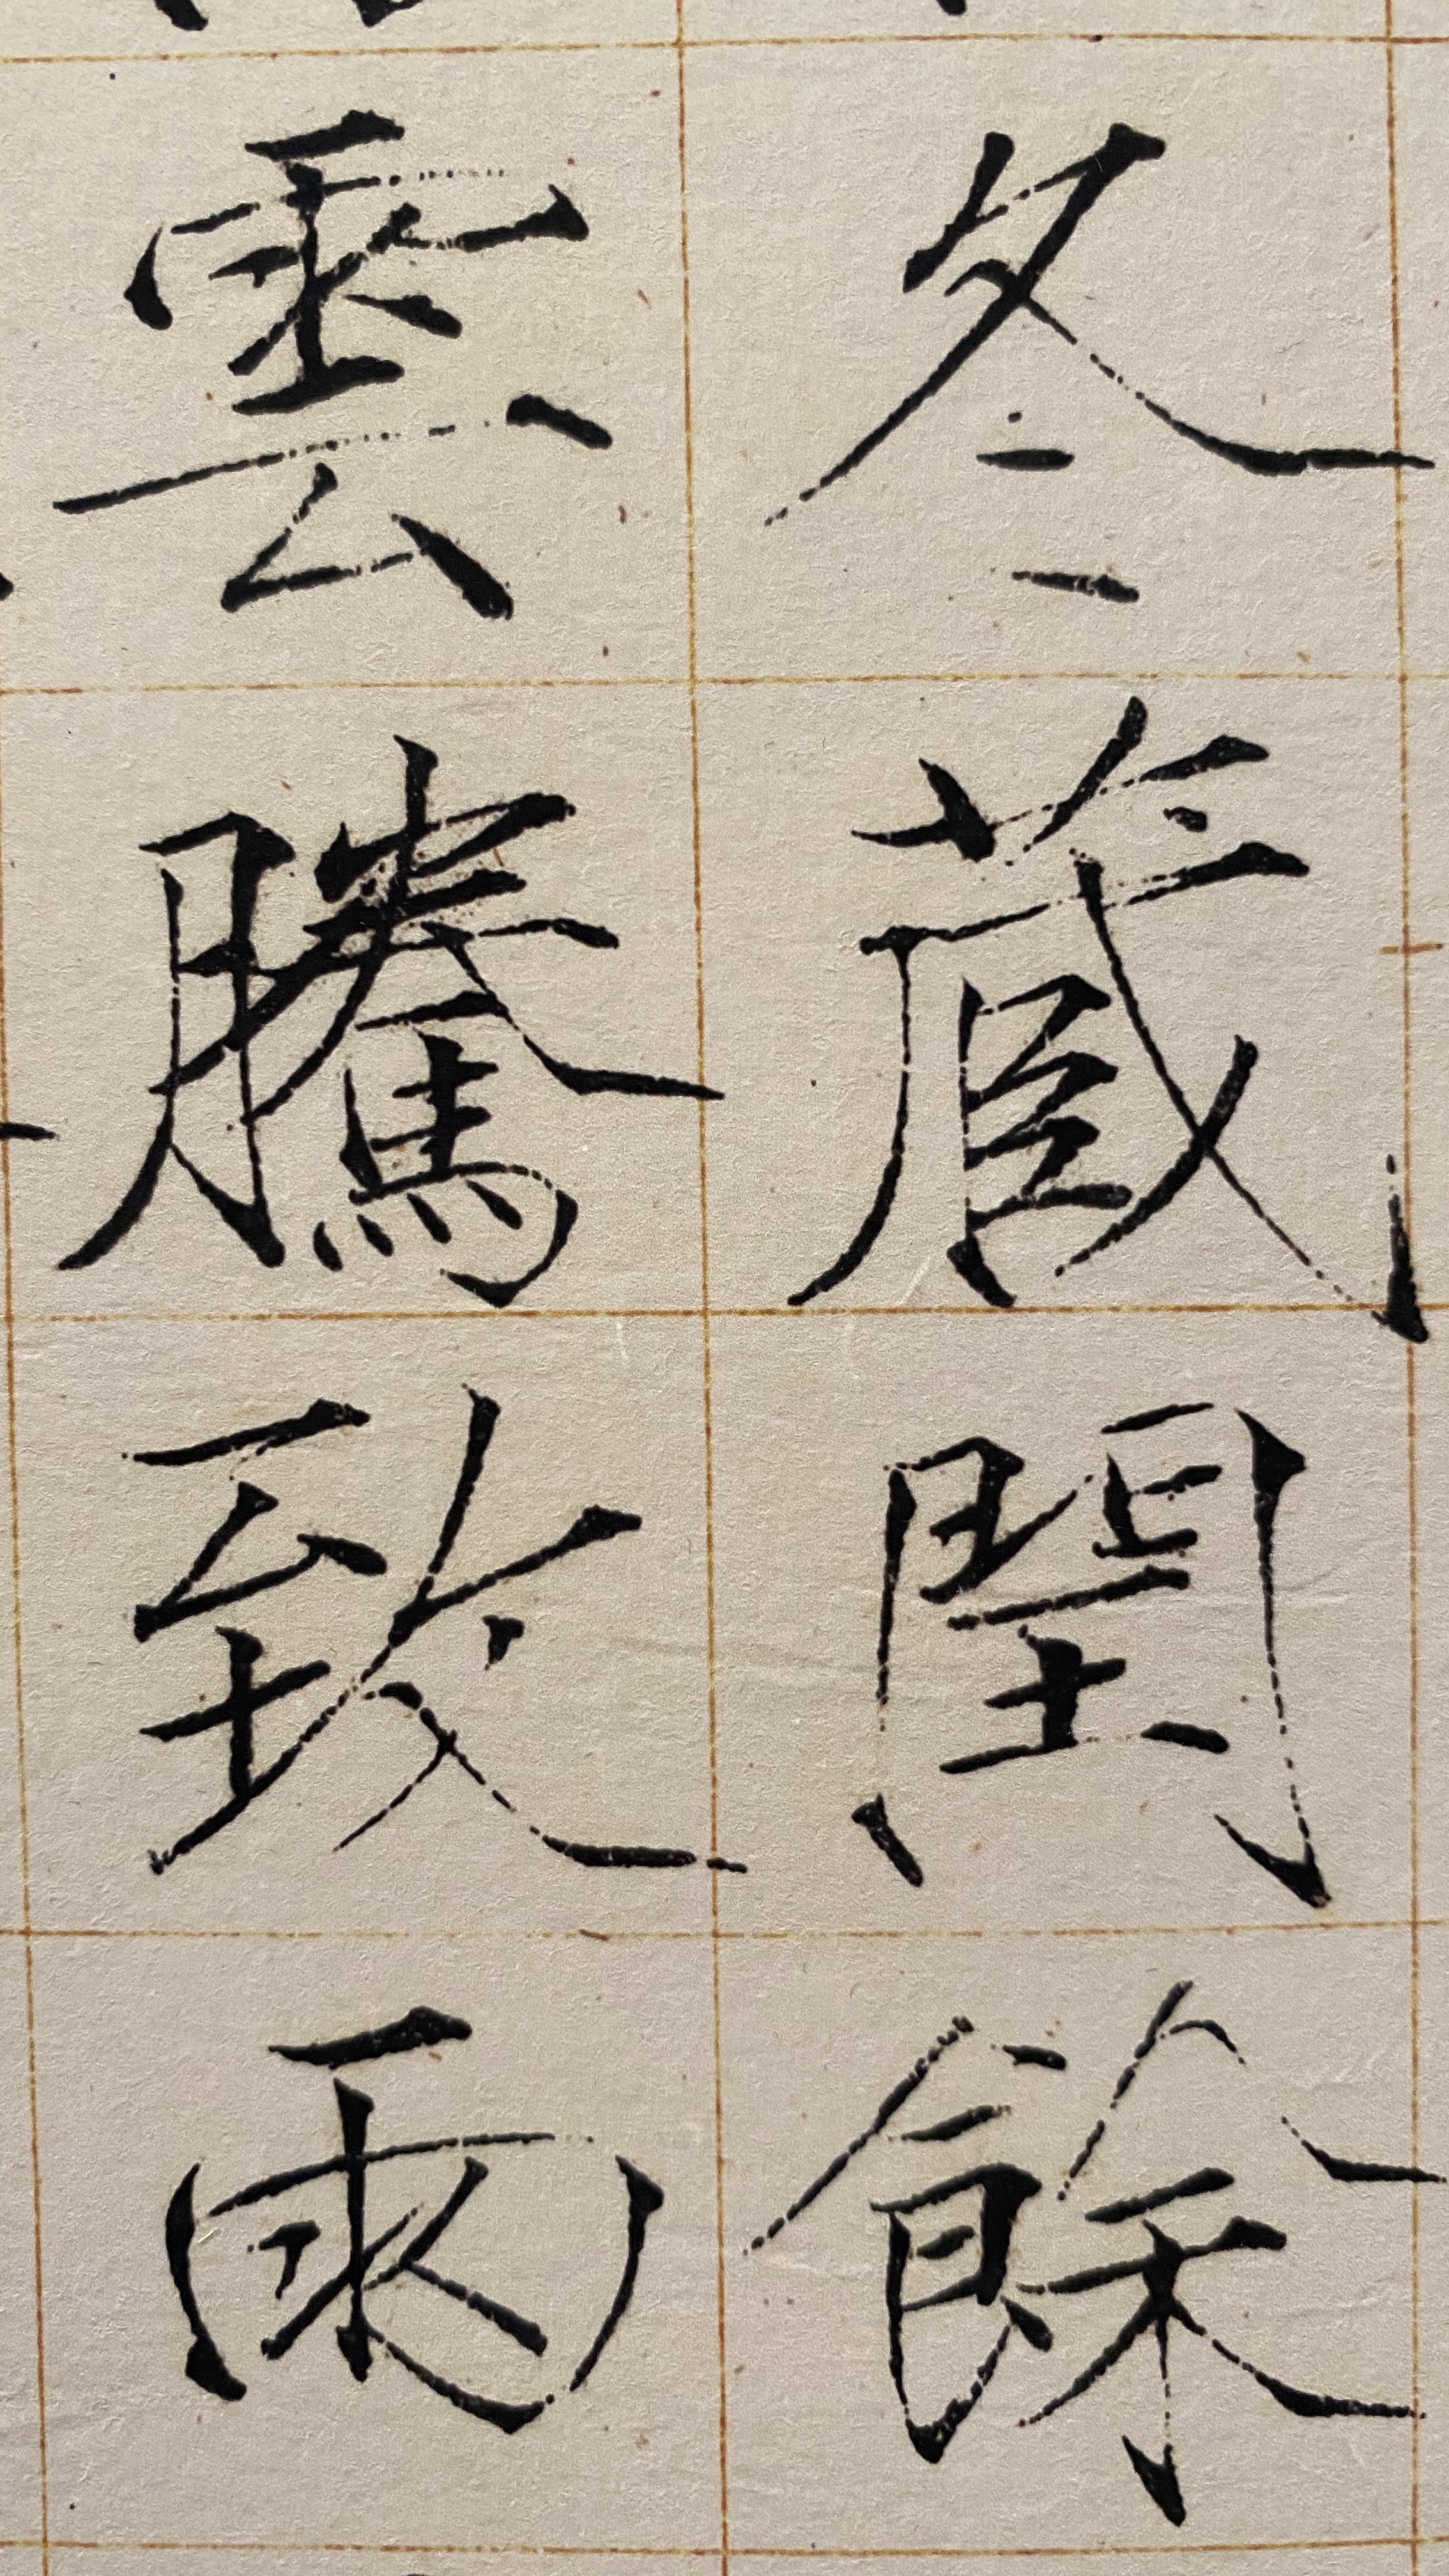 冬藏閏餘
雲騰致雨